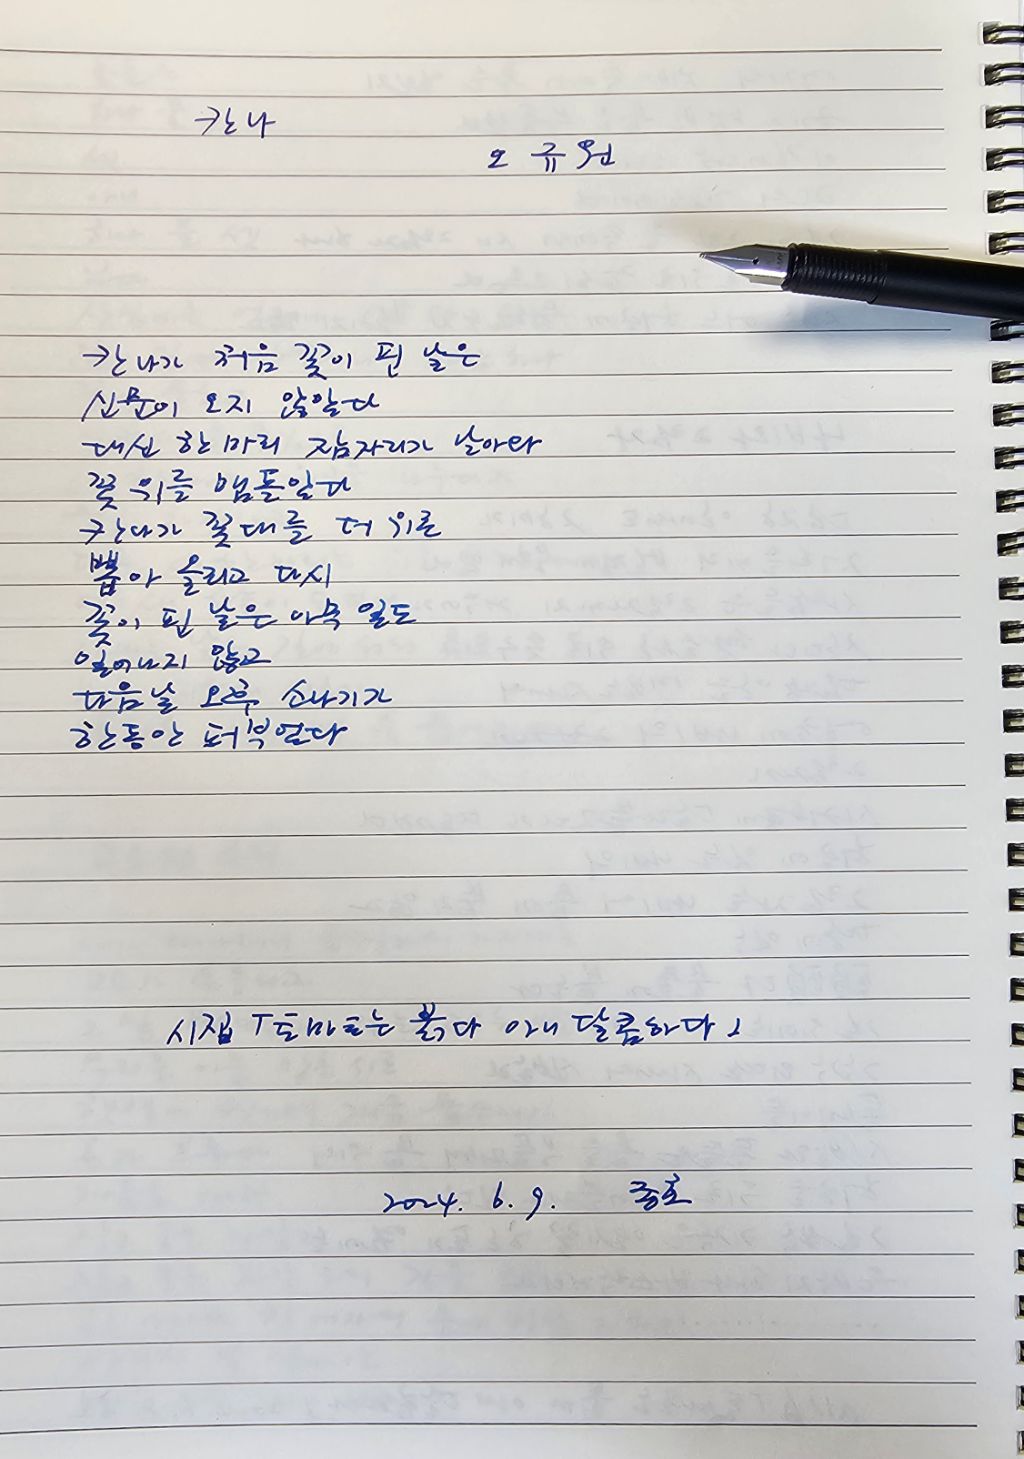 칸나
오규원
칸나가 처음 꽃이 핀 날은
신문이 오지 않았다
대신 한 마리 잠자리가 날아와
꽃 위를 맴돌았다
칸나가 꽃대를 더 위로
뽑아 올리고 다시
꽃이 핀 날은 아무 일도
일어나지 않고
다음날 오후 소나기가
한동안 퍼부었다
시집 「토마토는 붉다 아니 달콤하다」
2024. 6. 9. 종호